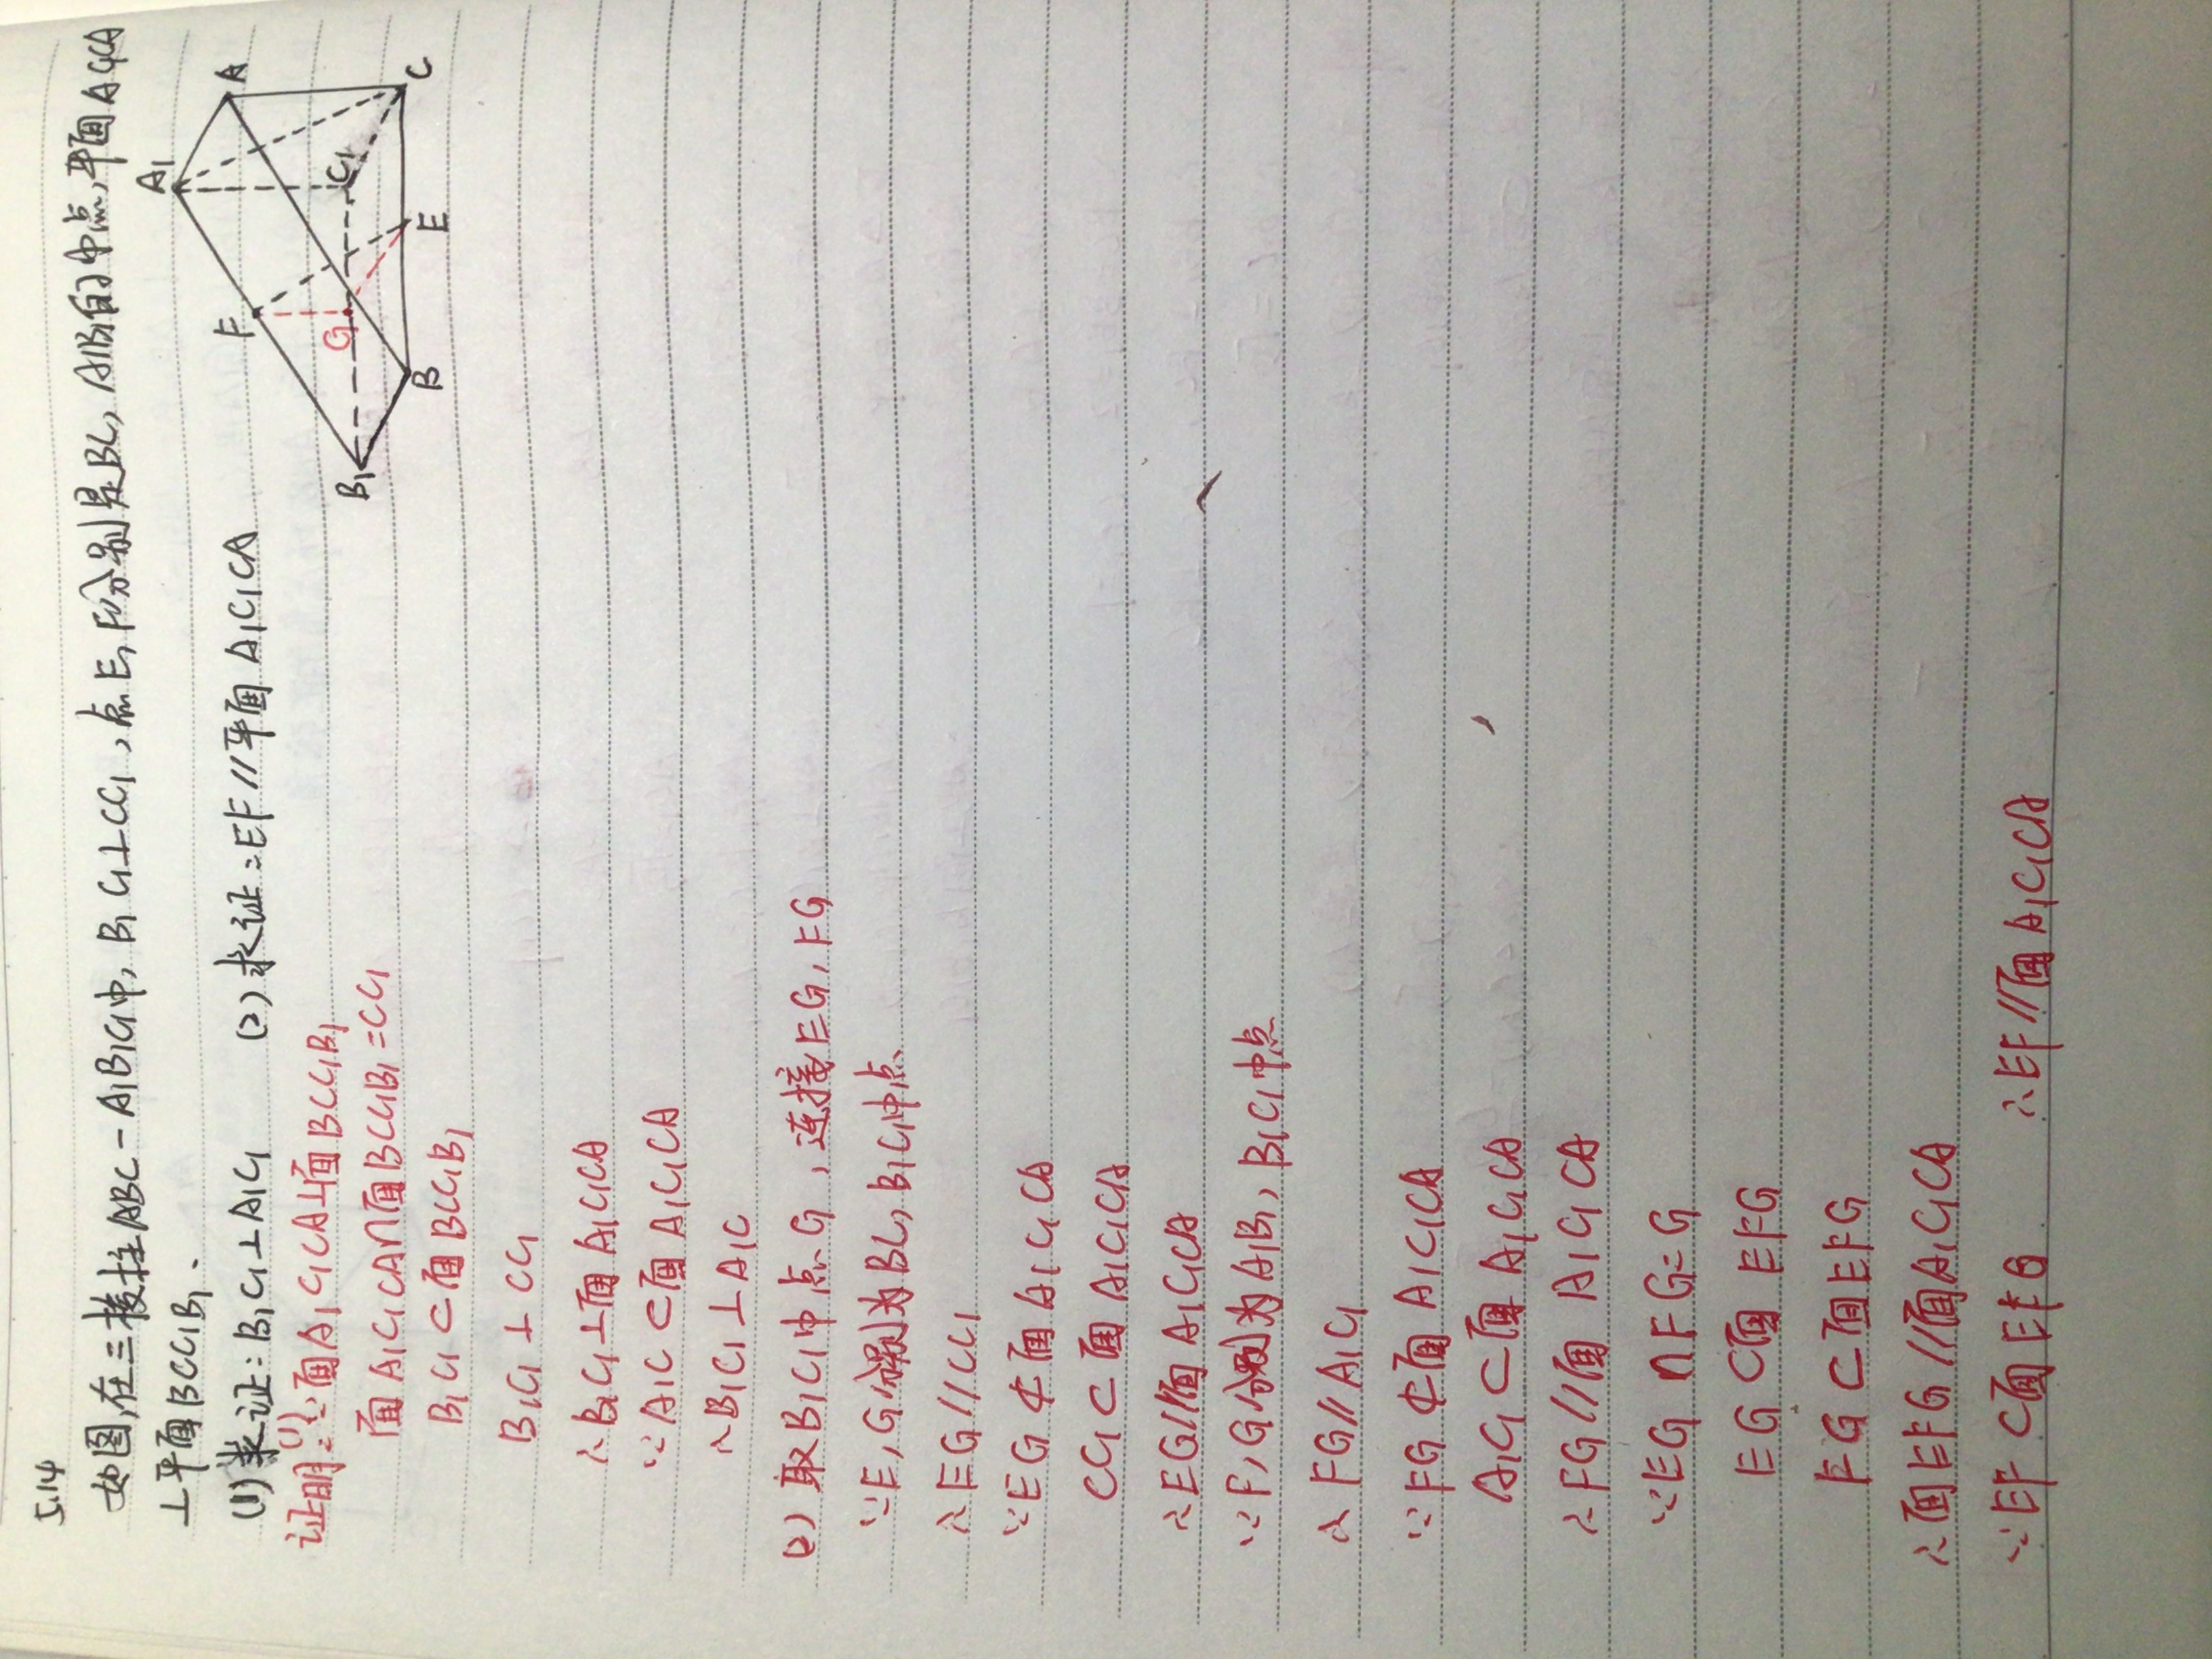 5.14
如图,在三棱柱ABC-A₁B₁C₁中, B₁C₁⊥CC₁,点E,F分别是BC,A₁B₁的中点,平面A₁C₁CA
⊥平面BCC₁B₁.
(1)求证:B₁C₁⊥A₁C₁ (2)求证:EF//平面A₁C₁CA
证明:(1)∵面A₁C₁CA⊥面BCC₁B₁
面A₁C₁CA∩面BCC₁B₁=CC₁
B₁C₁⊂面BCC₁B₁
B₁C₁⊥CC₁
∴B₁C₁⊥面A₁C₁CA
∵A₁C⊂面A₁C₁CA
∴B₁C₁⊥A₁C
(2)取B₁C₁中点G,连接EG,FG
∵E,G分别为BC,B₁C₁中点
∴EG//CC₁
∵EG⊄面A₁C₁CA
CC₁⊂面A₁C₁CA
∴EG//面A₁C₁CA
∵F,G分别为A₁B₁,B₁C₁中点
∴FG//A₁C₁
∵FG⊄面A₁C₁CA
A₁C₁⊂面A₁C₁CA
∴FG//面A₁C₁CA
∵EG∩FG=G
EG⊂面EFG
FG⊂面EFG
∴面EFG//面A₁C₁CA
∵EF⊂面EFG ∴EF//面A₁C₁CA
A₁
F
A
B₁
G
C₁
B
E
C